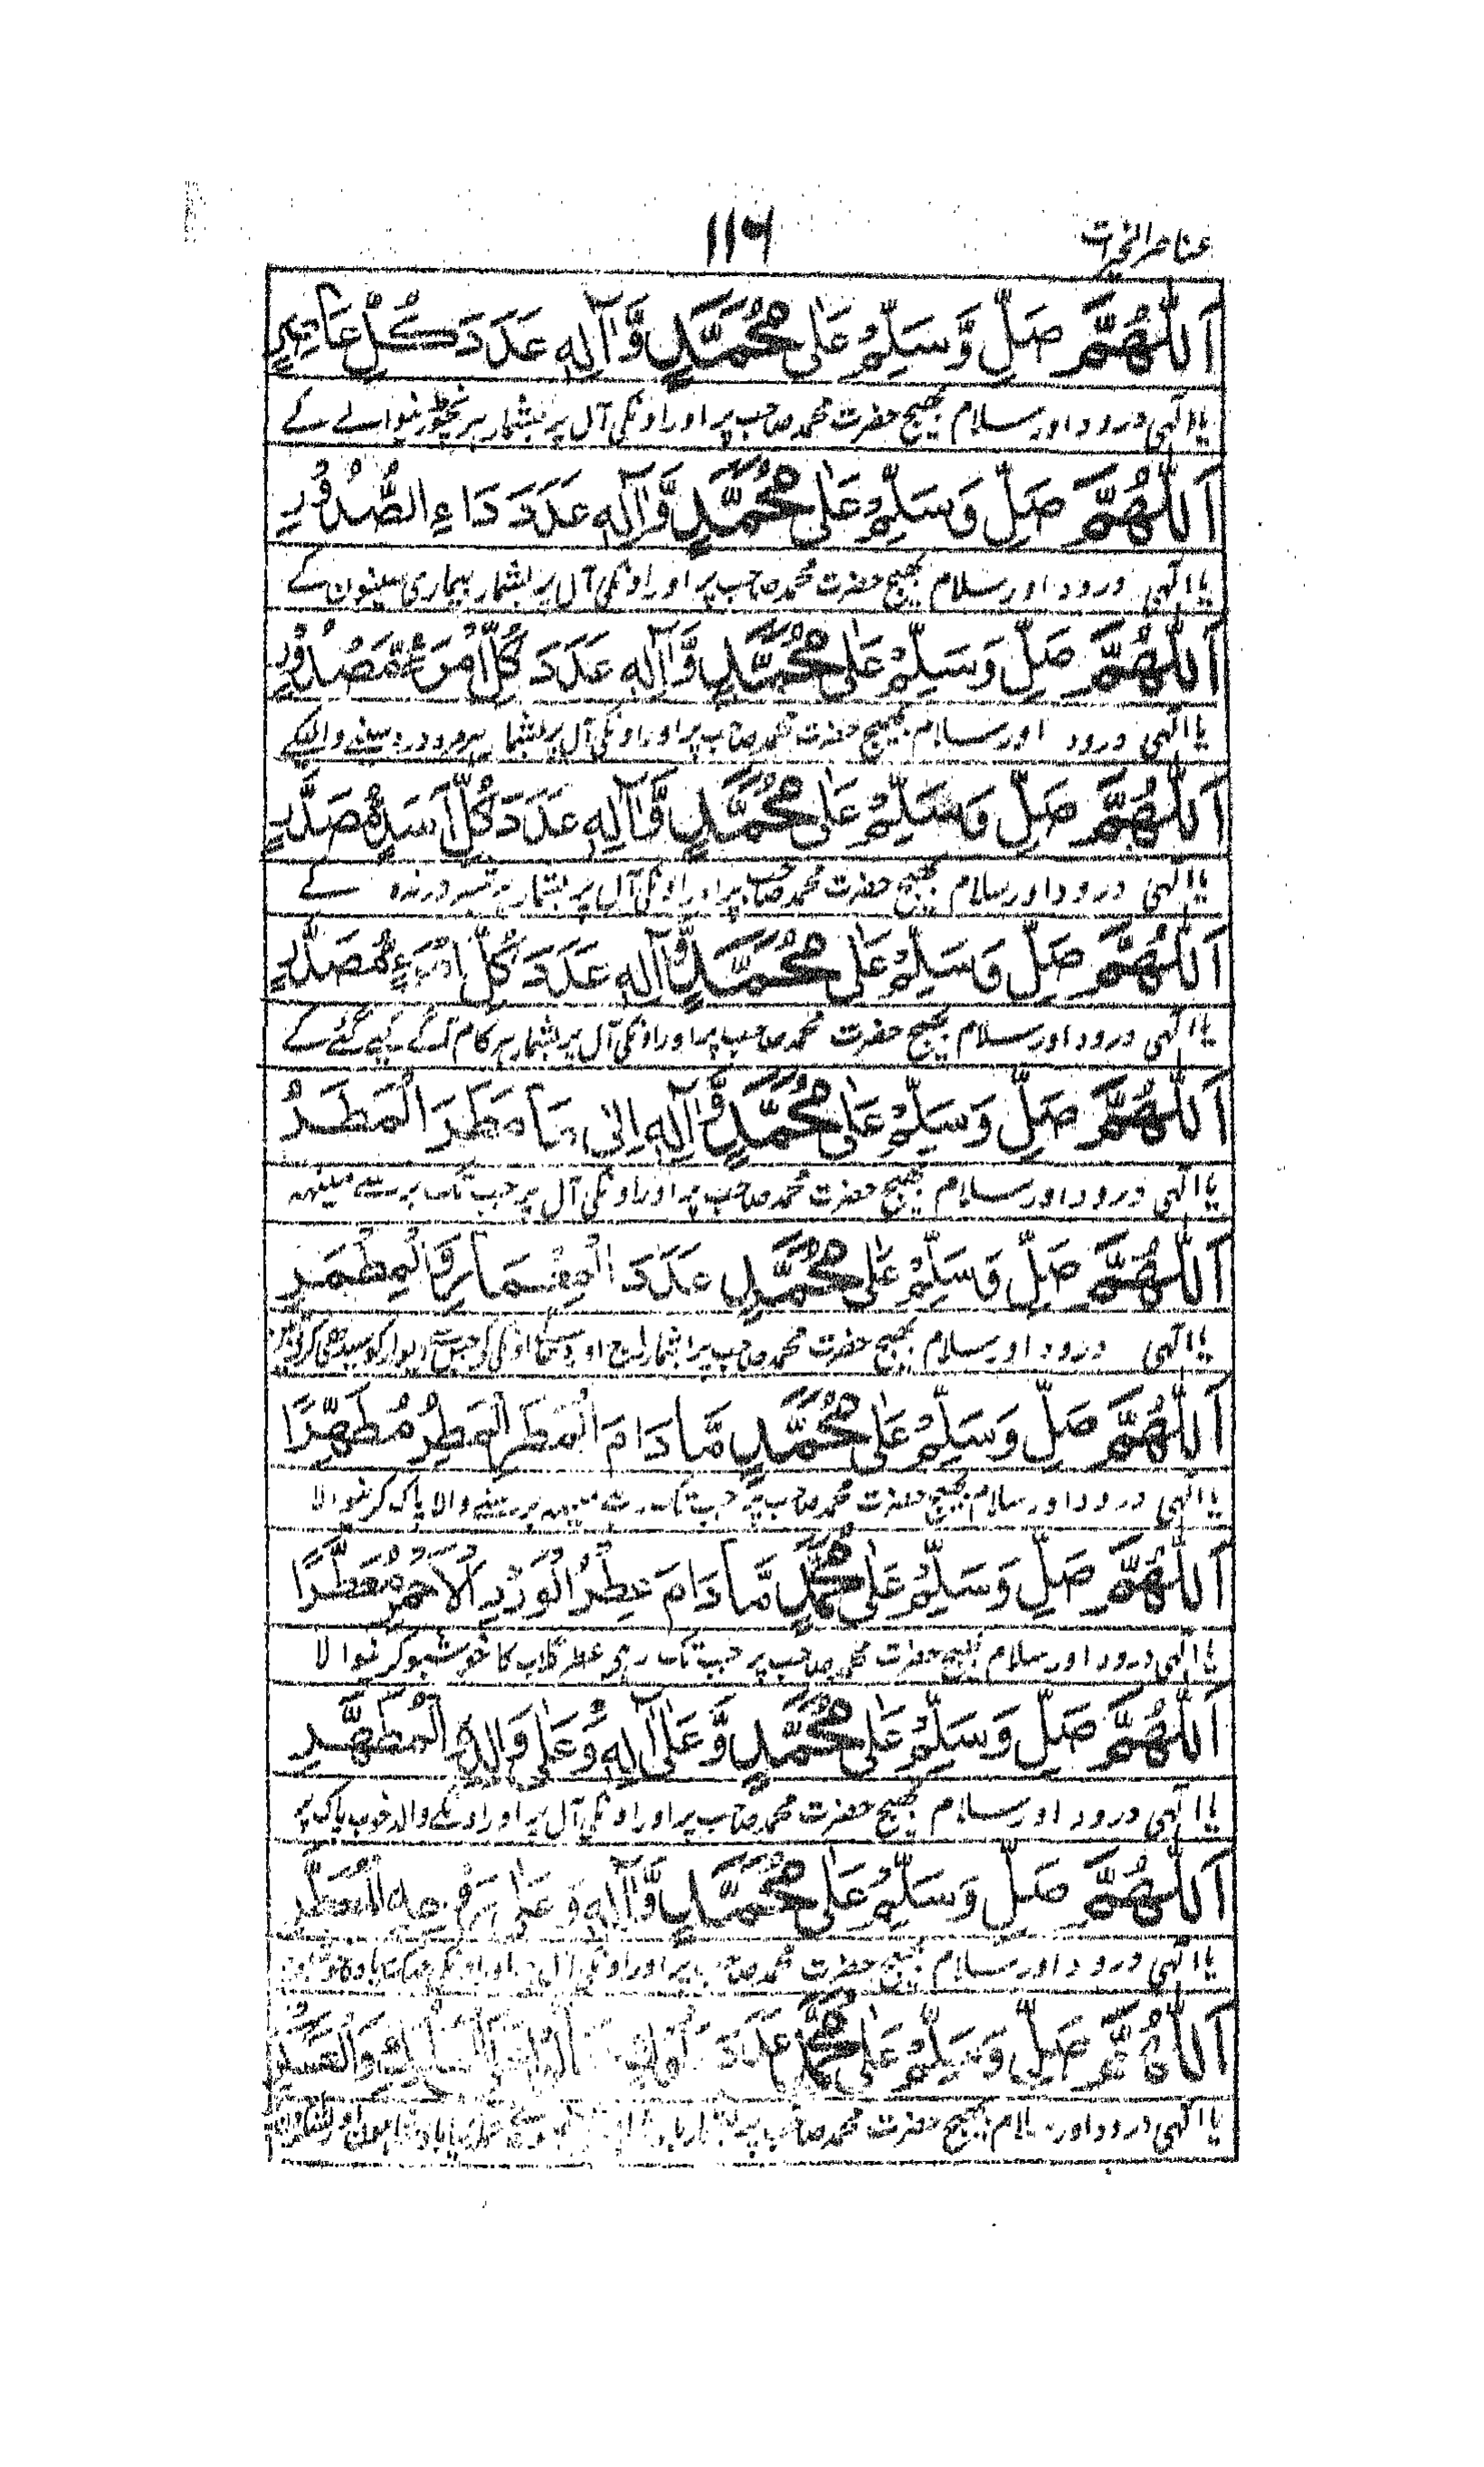 عناصر الخیرات
۱۱۶
اَللّٰهُمَّ صَلِّ وَّسَلِّمْ عَلٰى مُحَمَّدٍ وَّآلِهِ عَدَدَ كُلِّ عَاصِرٍ
یا الٰہی درود اور سلام بھیج حضرت محمد صاحب پر اور اونکی آل پر بشمار ہر نچوڑنیوالے کے
اَللّٰهُمَّ صَلِّ وَسَلِّمْ عَلٰى مُحَمَّدٍ وَّآلِهِ عَدَدَ دَاءِ الصُّدُوْرِ
یا الٰہی درود اور سلام بھیج حضرت محمد صاحب پر اور اونکی آل پر بشمار بیماری سینون کے
اَللّٰهُمَّ صَلِّ وَسَلِّمْ عَلٰى مُحَمَّدٍ وَّآلِهِ عَدَدَ كُلِّ امْرَءٍ مَّصْدُوْرٍ
یا الٰہی درود اور سلام بھیج حضرت محمد صاحب پر اور اونکی آل پر بشمار ہر مرد درد سینے والیکے
اَللّٰهُمَّ صَلِّ وَسَلِّمْ عَلٰى مُحَمَّدٍ وَّآلِهِ عَدَدَ كُلِّ اَسَدٍ مُّصَدَّرٍ
یا الٰہی درود اور سلام بھیج حضرت محمد صاحب پر اور اونکی آل پر بشمار ہر درندہ کے
اَللّٰهُمَّ صَلِّ وَسَلِّمْ عَلٰى مُحَمَّدٍ وَّآلِهِ عَدَدَ كُلِّ امْرَءٍ مُّصَدَّرٍ
یا الٰہی درود اور سلام بھیج حضرت محمد صاحب پر اور اونکی آل پر بشمار ہر کام آگے کیے گئے کے
اَللّٰهُمَّ صَلِّ وَسَلِّمْ عَلٰى مُحَمَّدٍ وَّآلِهِ اِلٰى مَا مَطَرَ الْمَطَرُ
یا الٰہی درود اور سلام بھیج حضرت محمد صاحب پر اور اونکی آل پر جب تک برسے مینہہ
اَللّٰهُمَّ صَلِّ وَسَلِّمْ عَلٰى مُحَمَّدٍ عَدَدَ الْمِضْمَارِ وَالْمِطْمَرِ
یا الٰہی درود اور سلام بھیج حضرت محمد صاحب پر بشمار اور دیوار کو سیدھی
اَللّٰهُمَّ صَلِّ وَسَلِّمْ عَلٰى مُحَمَّدٍ مَّا دَامَ الْمَطَرُ الْمَطِرُ مُطَهِّرًا
یا الٰہی درود اور سلام بھیج حضرت محمد صاحب پر جب تک رہے مینہہ برسنے والا پاک کرنیوالا
اَللّٰهُمَّ صَلِّ وَسَلِّمْ عَلٰى مُحَمَّدٍ مَّا دَامَ عِطْرُ الْوَرْدِ الْاَحْمَرِ مُعَطِّرًا
یا الٰہی درود اور سلام بھیج حضرت محمد صاحب پر جب تک رہی عطر گلاب کا خوشبو کرنیوالا
اَللّٰهُمَّ صَلِّ وَسَلِّمْ عَلٰى مُحَمَّدٍ وَّعَلٰى آلِهِ وَعَلٰى وَالِدِهِ الْمُطَهَّرِ
یا الٰہی درود اور سلام بھیج حضرت محمد صاحب پر اور اونکی آل پر اور اونکے والد خوب پاک پر
اَللّٰهُمَّ صَلِّ وَسَلِّمْ عَلٰى مُحَمَّدٍ وَّآلِهِ وَعَلٰى الْمُعَطَّرِ
یا الٰہی درود اور سلام بھیج حضرت محمد صاحب پر اور اونکی آل پر اور اونکی
اَللّٰهُمَّ صَلِّ وَسَلِّمْ عَلٰى مُحَمَّدٍ عَدَدَ
یا الٰہی درود اور سلام بھیج حضرت محمد صاحب پر بشمار